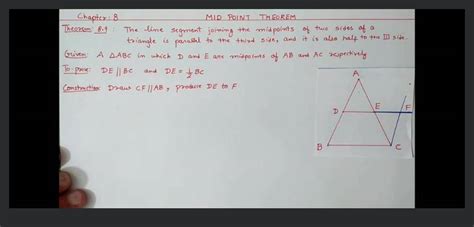 Chapter: 8 MID POINT THEOREM
Theorem: 8.9 The line segment joining the midpoints of two sides of a
triangle is parallel to the third side, and it is also half to the III side.
Given: A △ABC in which D and E are midpoints of AB and AC respectively
To prove: DE || BC and DE = ½ BC
Construction: Draw CF || AB, produce DE to F
A
D E F
B C